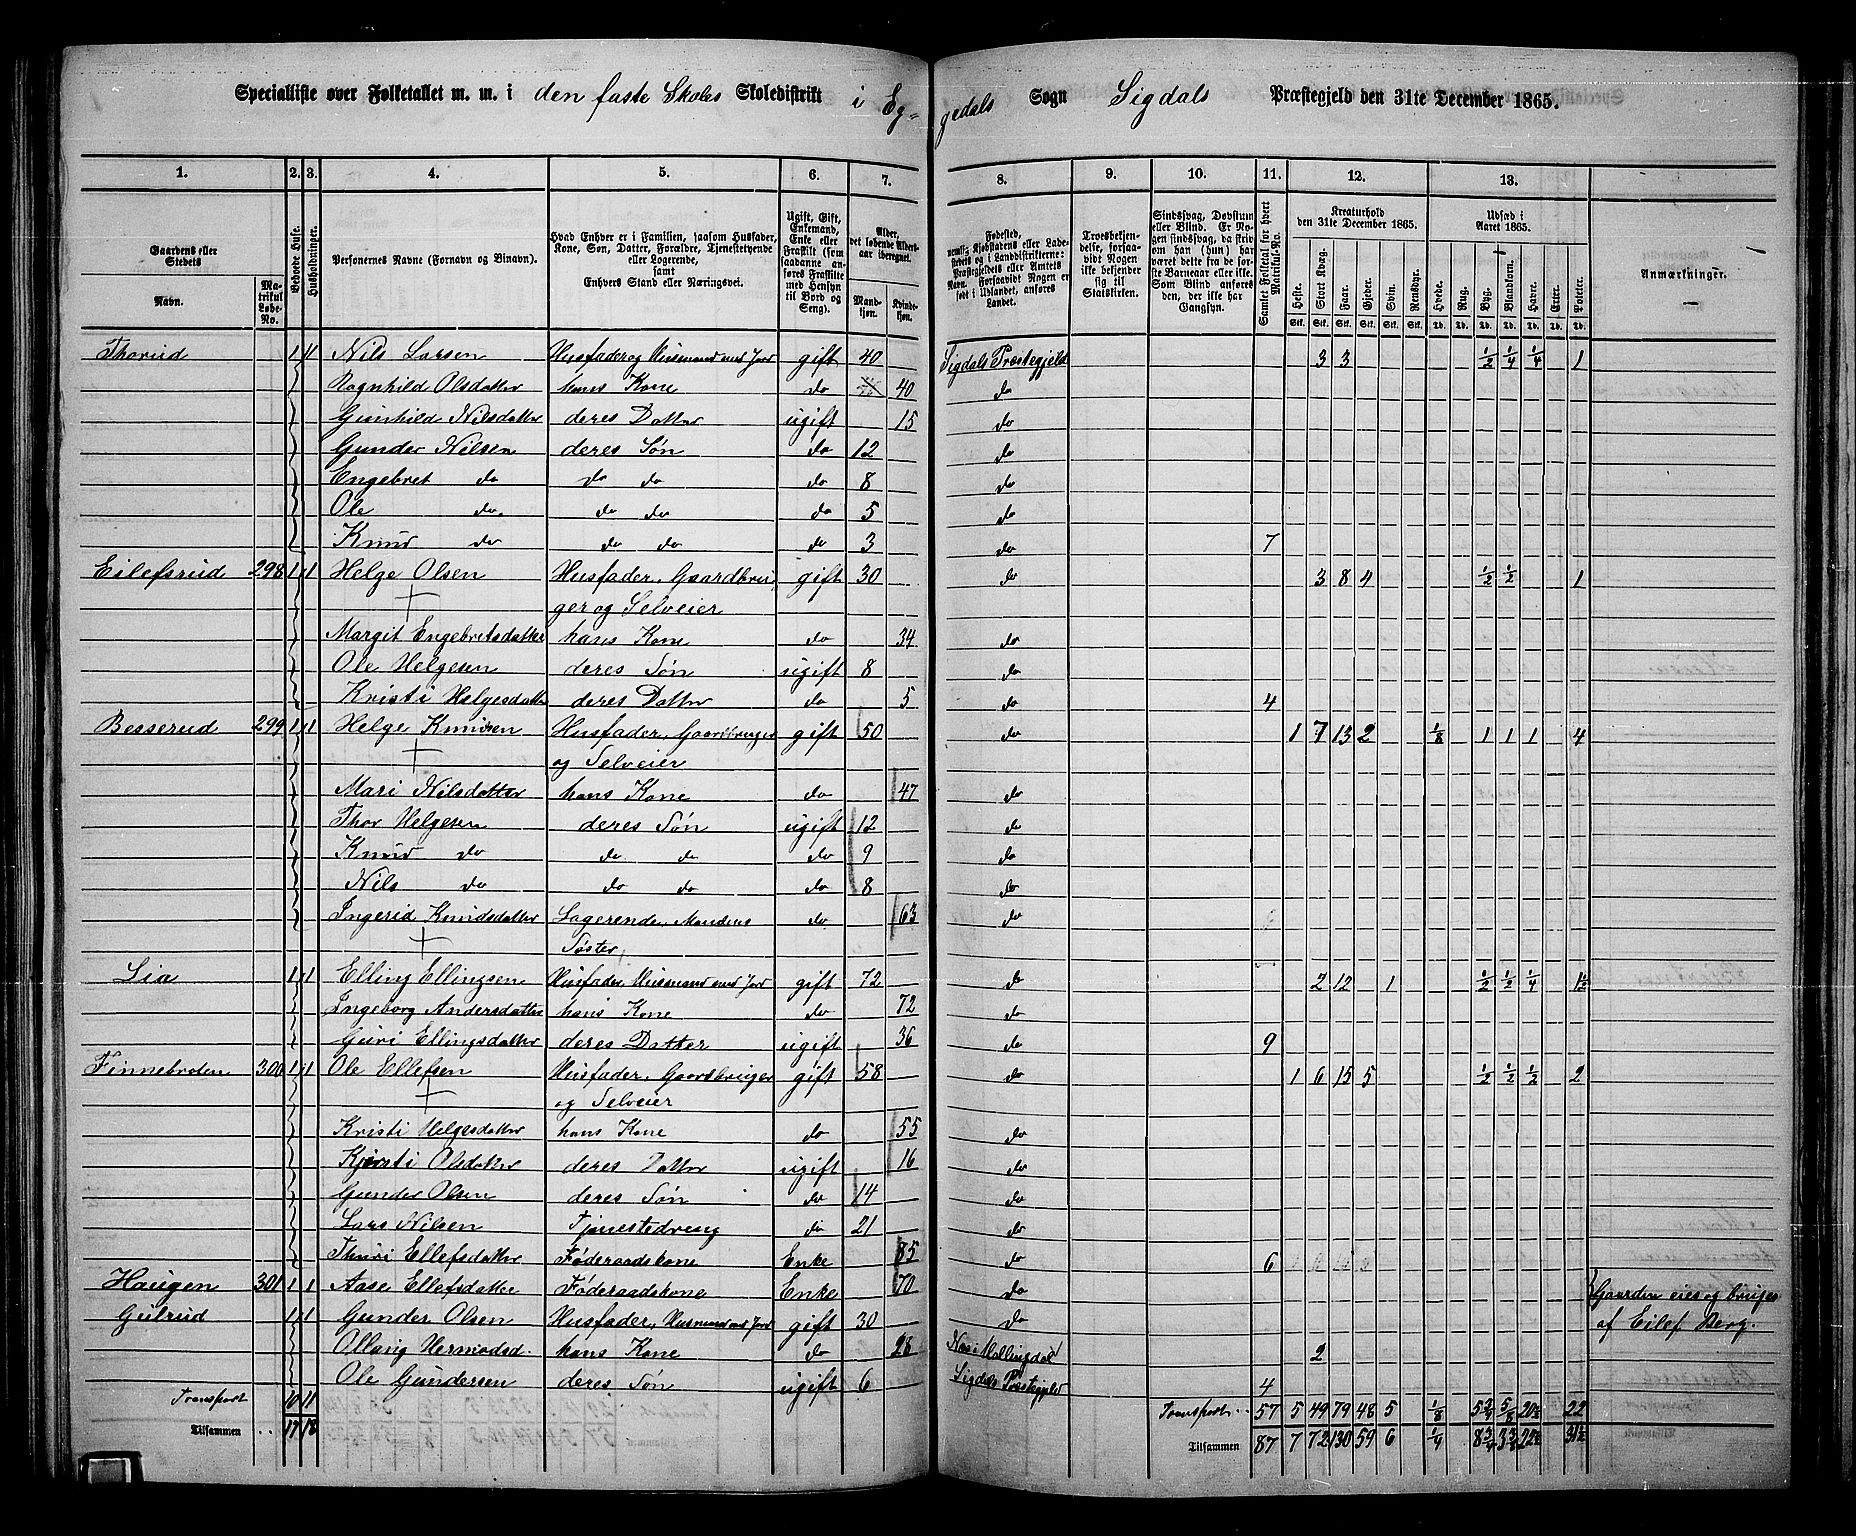 Specialliste over Folketallet m. m. i den faste Skoles Skoledistrikt i Eg-
gedals Sogn Sigdals Præstegjeld den 31te December 1865.
1. 2. 3. 4. 5. 6. 7. 8. 9. 10. 11. 12. 13.
Gaardens eller Stedets
Navn.
Matrikul Løbe-No.
Beboede Huse.
Husholdninger.
Personernes Navne (Fornavn og Binavn).
Hvad Enhver er i Familien, saasom Husfader, Kone, Søn, Datter, Forældre, Tjenestetyende eller Logerende, samt Enhvers Stand eller Næringsvei.
Ugift, Gift, Enkemand, Enke eller Fraskilt (som saadanne anføres Fraskilte med Hensyn til Bord og Seng).
Alder, det løbende Alders-aar iberegnet.
Mandkjøn. Kvindekjøn.
Fødested, nemlig Kjøbstadens eller Ladestedets og i Landdistrikterne: Præstegjeldets eller Amtets Navn. Forsaavidt Nogen er født i Udlandet, anføres Landet.
Troesbekjendelse, forsaavidt Nogen ikke bekjender sig til Statskirken.
Sindssvag, Døvstum eller Blind. Er Nogen sindssvag, da skrives om han (hun) har været dette fra første Barneaar eller ikke. Som Blind anføres den, der ikke har Gangsyn.
Samlet Folketal for hvert Matrikul-No.
Kreaturhold den 31te December 1865.
Heste. Stort Kvæg. Faar. Gjeder. Svin. Rensdyr.
Udsæd i Aaret 1865.
Hvede. Rug. Byg. Blandkorn. Havre. Erter. Poteter.
Anmærkninger.
Thorud 1 1 Nils Larsen Husfader og Husmand med Jord gift 40 Sigdals Præstegjeld 3 3 ½ ¼ ¼ 1
Ragnhild Olsdatter hans Kone do 40 do
Gunhild Nilsdatter deres Datter ugift 15 do
Gunder Nilsen deres Søn do 12 do
Engebret do do do do 8 do
Ole do. do do do 5 do
Knud do do do do 3 do 7
Eilefsrud 298 1 1 Helge Olsen Husfader, Gaardbru- gift 30 do 3 8 4 ½ ½ 1
ger og Selveier
Margit Engebretsdatter hans Kone do 34 do
Ole Helgesen deres Søn ugift 8 do
Kristi Helgesdatter deres Datter do 5 do 4
Besserud 299 1 1 Helge Knudsen Husfader, Gaardbruger gift 50 do 1 7 13 2 ⅛ 1 1 1 4
og Selveier
Mari Nilsdatter hans Kone do 47 do
Thor Helgesen deres Søn ugift 12 do
Knud do do do do 9 do
Nils do do do do 8 do
Ingerid Knudsdatter Logerende, Mandens do 63 do
Søster
Lia 1 1 Elling Ellingsen Husfader Husmand med Jord gift 72 do 2 12 1 ½ ½ ¼ 1½
Ingeborg Andersdatter hans Kone do 72 do
Guri Ellingsdatter deres Datter ugift 36 do 9
Finnebroten 300 1 1 Ole Ellefsen Husfader, Gaardbruger gift 58 do 1 6 15 5 ½ ½ ½ 2
og Selveier
Kristi Helgesdatter hans Kone do 55 do
Kjersti Olsdatter deres Datter ugift 16 do
Gunder Olsen deres Søn do 14 do
Lars Nilsen Tjenestedreng do 21 do
Thuri Ellefsdatter Føderaadskone Enke 85 do 6
Haugen 301 1 1 Aase Ellefsdatter Føderaadskone Enke 70 do Gaarden eies og bruges
Gulrud 1 1 Gunder Olsen Husfader, Husmand med Jord gift 30 do af Eilef Berg.
Ollaug Hermodsd. hans Kone do 26 Næs i Hallingdal 2
Ole Gundersen deres Søn ugift 6 Sigdals Præstegjeld 4
Transport 10 11 Transport 57 5 49 79 48 5 ⅛ 5¾ 5/8 20½ 22
Tilsammen 17 18 Tilsammen 87 7 72 130 59 6 ¼ 8¾ 22½ 31½